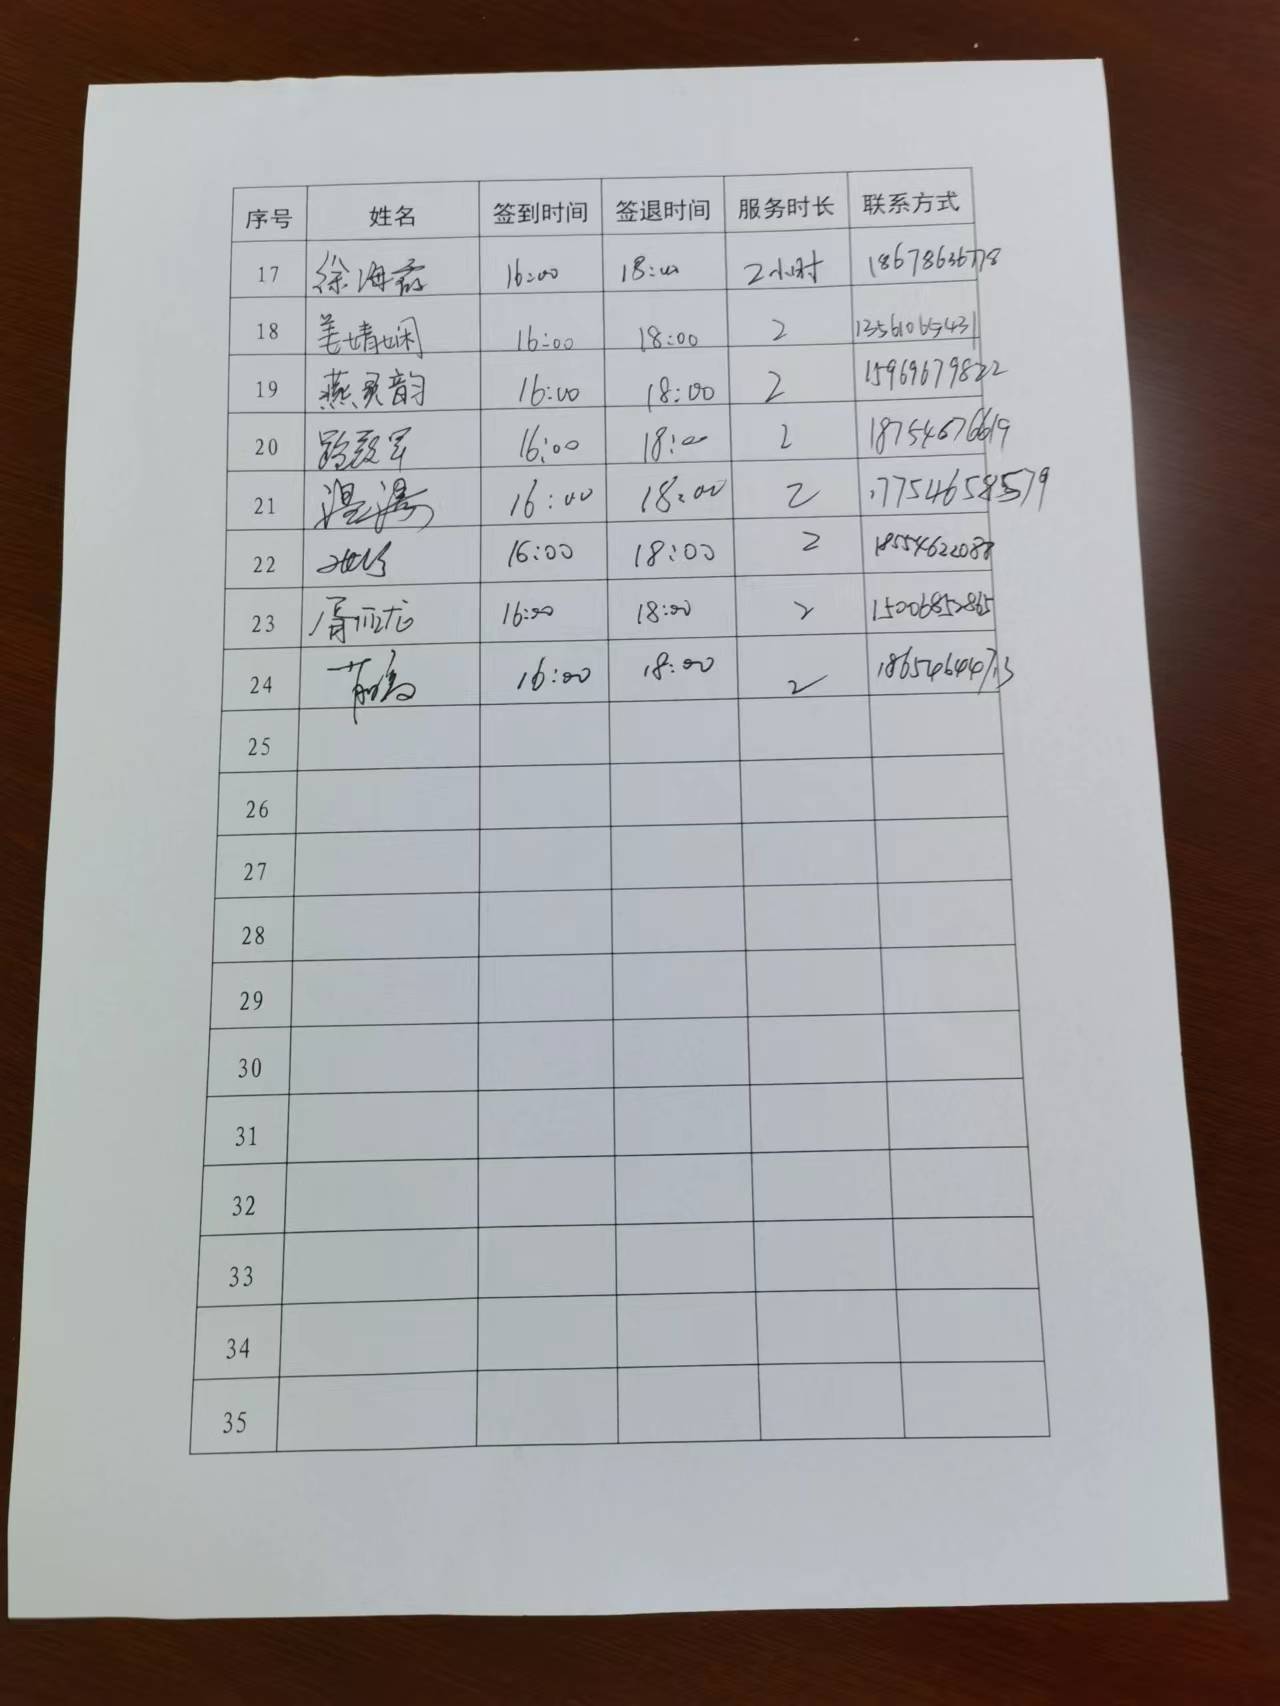 序号 姓名 签到时间 签退时间 服务时长 联系方式
17 徐海 16:00 18:00 2小时 18678636778
18 姜婧娴 16:00 18:00 2 13561065431
19 燕灵韵 16:00 18:00 2 15969679822
20 路 军 16:00 18:00 2 18754676619
21 温 16:00 18:00 2 17754658579
22 16:00 18:00 2 18554622088
23 胥 龙 16:00 18:00 2 15006852865
24 16:00 18:00 2 18654644713
25
26
27
28
29
30
31
32
33
34
35